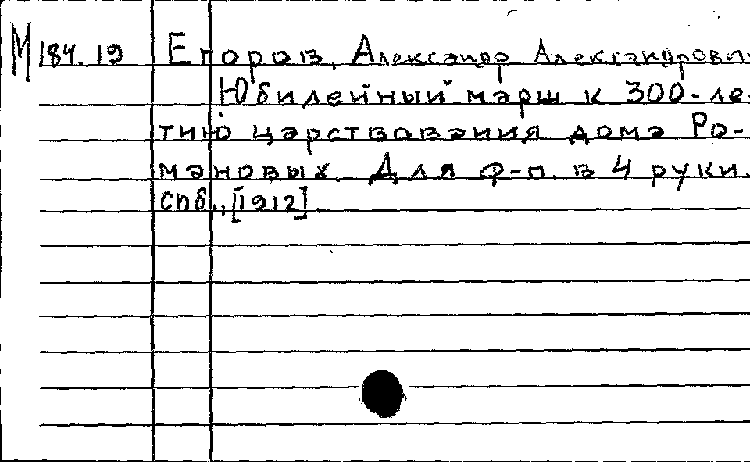 М 184.19 Егоров, Александр Александрович
Юбилейный марш к 300-ле-
тию царствования дома Ро-
мановых. Для ф-п. в 4 руки.
СПб., [1912]